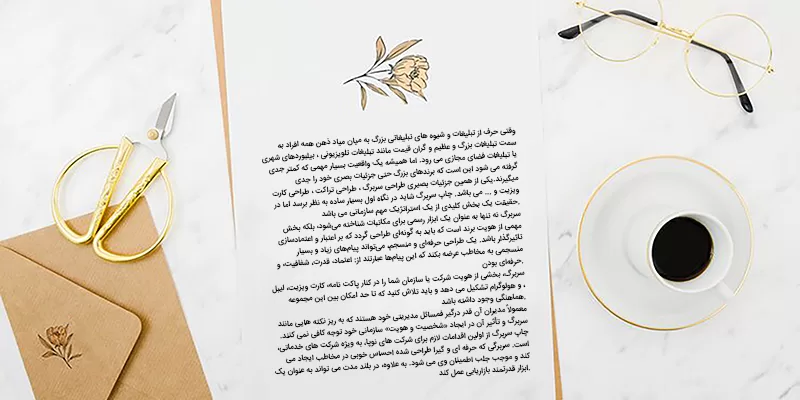 وقتی حرف از تبلیغات و شیوه های تبلیغاتی بزرگ به میان میاد ذهن همه افراد به
سمت تبلیغات بزرگ و عظیم و گران قیمت مانند تبلیغات تلویزیونی ، بیلبوردهای شهری
یا تبلیغات فضای مجازی می رود. اما همیشه یک واقعیت بسیار مهمی که کمتر جدی
گرفته می شود این است که برندهای بزرگ حتی جزئیات بصری خود را جدی
میگیرند.یکی از همین جزئیات بصیری طراحی سربرگ ، طراحی تراکت ، طراحی کارت
ویزیت و ... می باشد. چاپ سربرگ شاید در نگاه اول بسیار ساده به نظر برسد اما در
.حقیقت یک بخش کلیدی از یک استراتژیک مهم سازمانی می باشد
سربرگ نه تنها به عنوان یک ابزار رسمی برای مکاتبات شناخته می‌شود، بلکه بخش
مهمی از هویت برند است که باید به گونه‌ای طراحی گردد که بر اعتبار و اعتمادسازی
تاثیرگذار باشد. یک طراحی حرفه‌ای و منسجم، می‌تواند پیام‌های زیاد و بسیار
منسجمی به مخاطب عرضه بکند که این پیام‌ها عبارتند از: اعتماد، قدرت، شفافیت، و
.حرفه‌ای بودن
سربرگ، بخشی از هویت شرکت یا سازمان شما را در کنار پاکت نامه، کارت ویزیت، لیبل
، و هولوگرام تشکیل می دهد و باید تلاش کنید که تا حد امکان بین این مجموعه
.هماهنگی وجود داشته باشد
معمولاً مدیران آن قدر درگیر فمسائل مدیریتی خود هستند که به ریز نکته هایی مانند
سربرگ و تأثیر آن در ایجاد «شخصیت و هویت» سازمانی خود توجه کافی نمی کنند.
چاپ سربرگ از اولین اقدامات لازم برای شرکت های نوپا، به ویژه شرکت های خدماتی،
است. سربرگی که حرفه ای و گیرا طراحی شده احساس خوبی در مخاطب ایجاد می
کند و موجب جلب اطمینان وی می شود. به علاوه، در بلند مدت می تواند به عنوان یک
.ابزار قدرتمند بازاریابی عمل کند